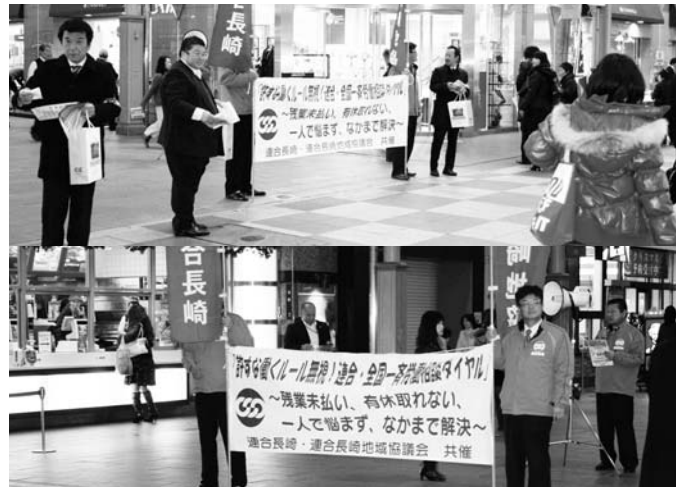 合長崎
「許すな働くルール無視！連合・全国一斉労働相談ダイヤル」
～残業未払い、有休取れない、
一人で悩まず、なかまで解決～
連合長崎・連合長崎地域協議会 共催
合長崎
崎地協
「許すな働くルール無視！連合・全国一斉労働相談ダイヤル」
～残業未払い、有休取れない、
一人で悩まず、なかまで解決～
連合長崎・連合長崎地域協議会 共催